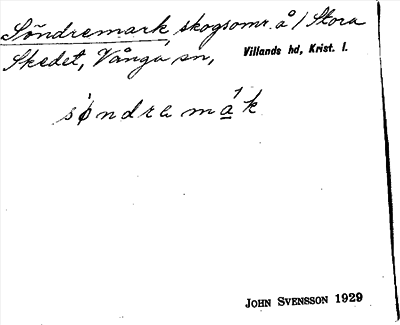 Söndremark, skogsomr. å 1 Stora
Skedet, Vånga sn, Villands hd, Krist. l.
søndramák
JOHN SVENSSON 1929